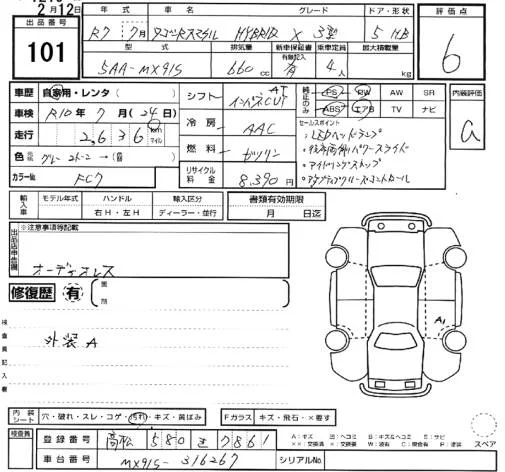 2月12日
出品番号
101
年式 車名 グレード ドア・形状 評価点
R7 7月 ワゴンRスマイル HYBRID X 3型 5 HB 6
型式 排気量 新車保証書 有無記入 乗車定員 最大積載量
5AA-MX91S 660cc 有 4人 kg
車歴 自家用・レンタ( )
車検 R10年 7月(24日)
走行 2,636 km マイル
色 グレー 2トーン →( )
カラーNo. FC7
シフト AT インパネCVT
冷房 AAC
燃料 ガソリン
リサイクル料金 8,390円
純正のみ PS PW AW SR
ABS エアB TV ナビ
内装評価
a
セールスポイント
・LEDヘッドランプ
・後席両側パワースライド
・アイドリングストップ
・アダプティブクルーズコントロール
輸入車 モデル年式 ハンドル 輸入区分 書類有効期限
右H・左H ディーラー・並行 月 日迄
出品店申告欄
※注意事項等記載
オーディオレス
修復歴 有 箇所
検査員記入欄
外装A
A1
内装シート 穴・破れ・スレ・コゲ・汚れ・キズ・黄ばみ Fガラス キズ・飛石・×要す
検査員 登録番号 高松 580 7861
A:キズ U:ヘコミ B:キズ&ヘコミ S:サビ
スペア
車台番号 MX91S-316267 シリアルNo.